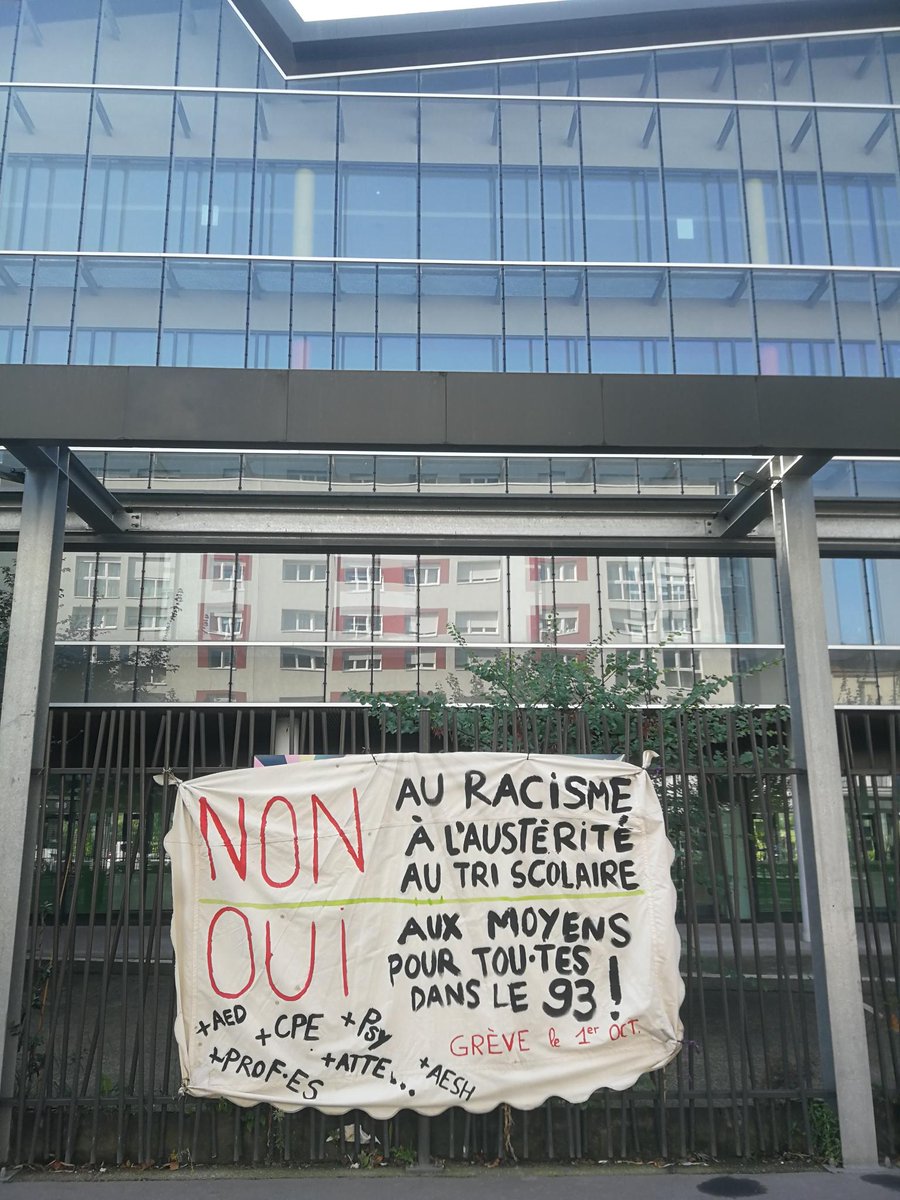 NON
AU RACISME
À L'AUSTÉRITÉ
AU TRI SCOLAIRE
OUI
AUX MOYENS
POUR TOU·TES
DANS LE 93 !
+AED
+CPE
+Psy
+PROF·ES
+ATTE...
+AESH
GRÈVE le 1er OCT.